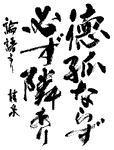 德孤ならず
必ず隣あり
論語より